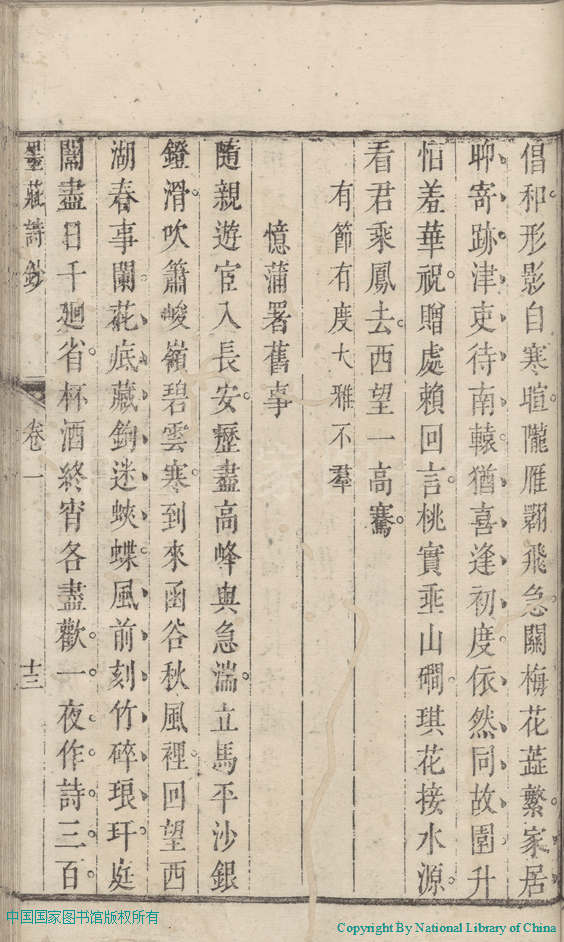 倡和形影自寒暄隴雁翺飛急關梅花蕋繁家居
聊寄跡津吏待南轅猶喜逢初度依然同故園升
怕羞華祝贈處賴回言桃實垂山磵琪花接水源
看君乘鳳去西望一高騫
有節有度大雅不羣
憶蒲署舊事
隨親遊宦入長安歷盡高峰與急湍立馬平沙銀
鐙滑吹簫峻嶺碧雲寒到來函谷秋風裡回望西
湖春事闌花底藏鉤迷蛺蝶風前刻竹碎琅玕庭
闈盡日千廻省杯酒終宵各盡歡一夜作詩三百
墨莊詩鈔 卷一 十三
中国国家图书馆版权所有
Copyright By National Library of China